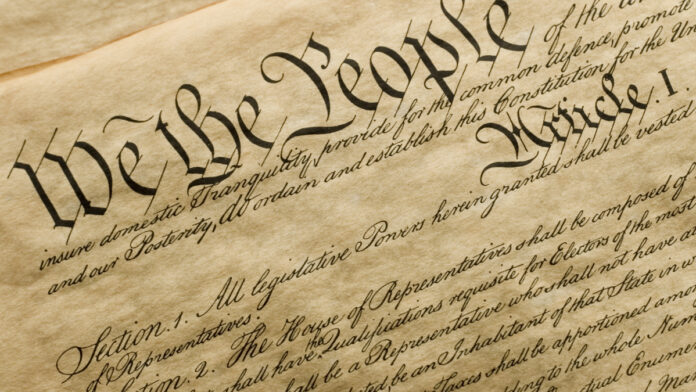 We the People of the
insure domestic Tranquility, provide for the common defence, promote
and our Posterity, do ordain and establish this Constitution for the Un
Article. I.
Section. 1. All legislative Powers herein granted shall be vested
of Representatives.
ction. 2. The House of Representatives shall be composed of
shall have the Qualifications requisite for Electors of the most
shall be a Representative who shall not have at
ted, be an Inhabitant of that State in w
Taxes shall be apportioned amon
ding to the whole Num
ctual Enumer